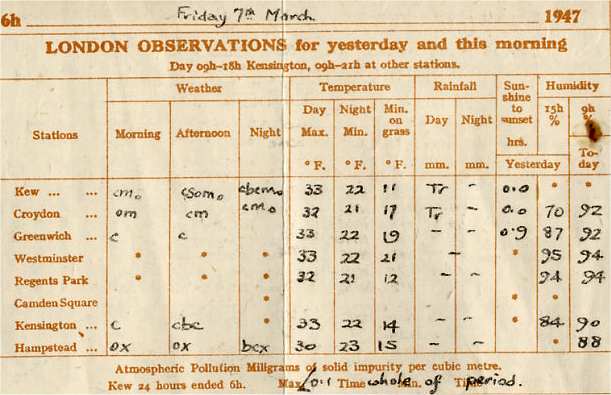 6h Friday 7th March. 1947
LONDON OBSERVATIONS for yesterday and this morning
Day 09h-18h Kensington, 09h-21h at other stations.
Weather Temperature Rainfall Sun-shine to sunset Humidity
Stations Morning Afternoon Night Day Max. Night Min. Min. on grass Day Night hrs. 15h % 9h %
° F. ° F. ° F. mm. mm. Yesterday To-day
Kew ... ... cmo csomo cbcmo 33 22 11 Tr - 0.0 * *
Croydon ... om cm cmo 32 21 17 Tr - 0.0 70 92
Greenwich ... c c 33 22 19 - - 0.9 87 92
Westminster * * * 33 22 21 - * 95 94
Regents Park * * * 32 21 12 - - 94 94
Camden Square * * *
Kensington ... c cbc * 33 22 14 - - * 84 90
Hampstead ... ox ox bcx 30 23 15 - - * 88
Atmospheric Pollution Millgrams of solid impurity per cubic metre.
Kew 24 hours ended 6h. Max 0.1 Time whole of Time period.